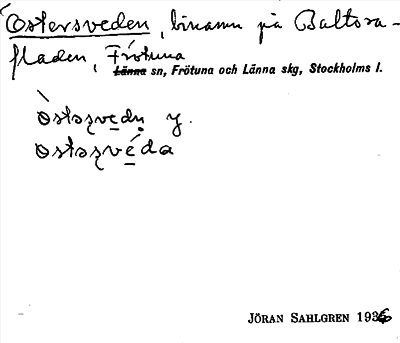 Östersveden, binamn på Baltora-
fladen, Frötuna
Länna sn, Frötuna och Länna skg, Stockholms l.
òstsʒvedn y.
ostsʒvéda
JÖRAN SAHLGREN 1936